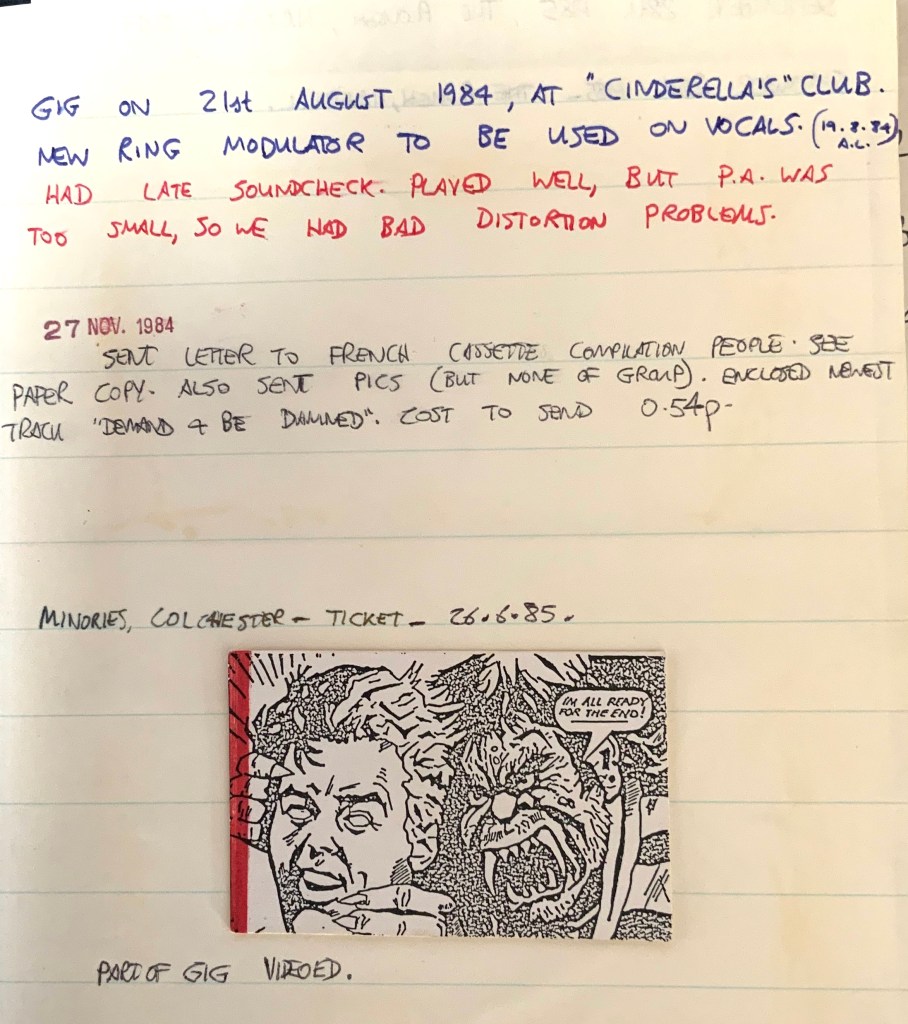 GIG ON 21st AUGUST 1984, AT "CINDERELLA'S" CLUB.
NEW RING MODULATOR TO BE USED ON VOCALS. (19.8.84),
A.L.
HAD LATE SOUNDCHECK. PLAYED WELL, BUT P.A. WAS
TOO SMALL, SO WE HAD BAD DISTORTION PROBLEMS.
27 NOV. 1984
SENT LETTER TO FRENCH CASSETTE COMPILATION PEOPLE. SEE
PAPER COPY. ALSO SENT PICS (BUT NONE OF GROUP). ENCLOSED NEWEST
TRACK "DEMAND & BE DAMNED". COST TO SEND 0.54p-
MINORIES, COLCHESTER - TICKET - 26.6.85.
I'M ALL READY
FOR THE END!
PART OF GIG VIDEOED.